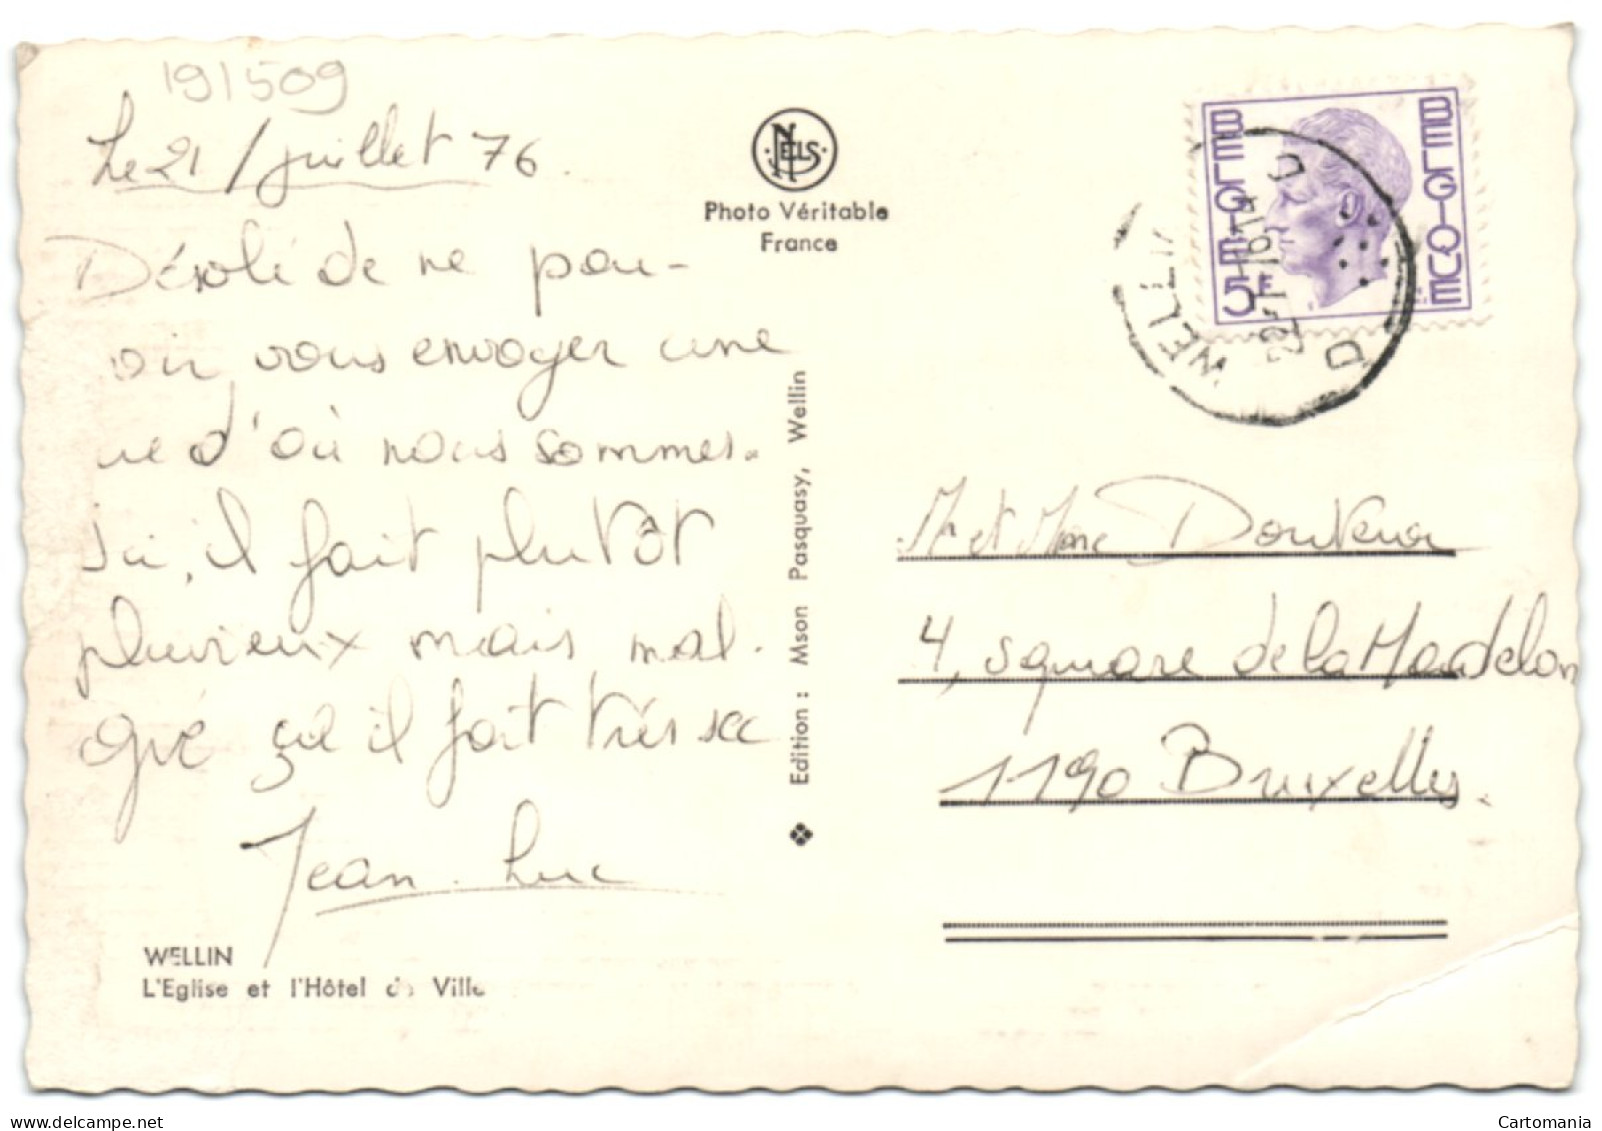 191509
Le 21 / juillet 76
Désolé de ne pou-
oir vous envoyer une
ue d'où nous sommes.
Ici, il fait plutôt
pluvieux mais mal-
gré ça il fait très sec
Jean-Luc
WELLIN
L'Eglise et l'Hôtel de Ville
NELS
Photo Véritable
France
Edition : Mson Pasquasy, Wellin
BELGIE
BELGIQUE
5F
WELLIN
Mr et Mme
4, square de la Madelon
1190 Bruxelles.
Cartomania